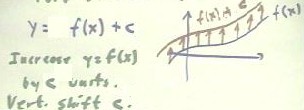 y = f(x) + c
f(x) + c
f(x)
Increase y = f(x)
by c units.
Vert. shift c.